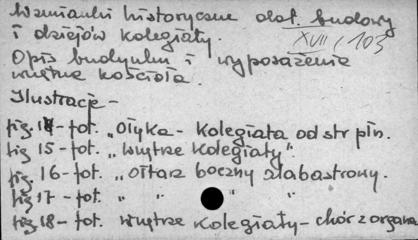 Wzmianki historyczne dot. budowy
i dziejów kolegiaty. XVII/103
Opis budynku i wyposażenie
wnętrze kościoła.
Ilustracje -
fig 14 - fot. „Ołyka - Kolegiata od str płn.
fig 15 - fot. „Wnętrze Kolegiaty"
fig 16 - fot. „ołtarz boczny alabastrowy.
fig 17 - fot. „ " "
fig 18 - fot. Wnętrze Kolegiaty - chór z organa